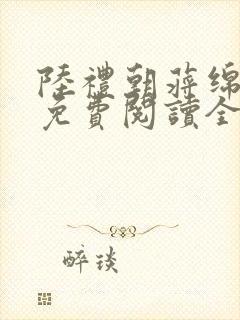 陸禮朝蔣绵
免費閱讀全
醉琰